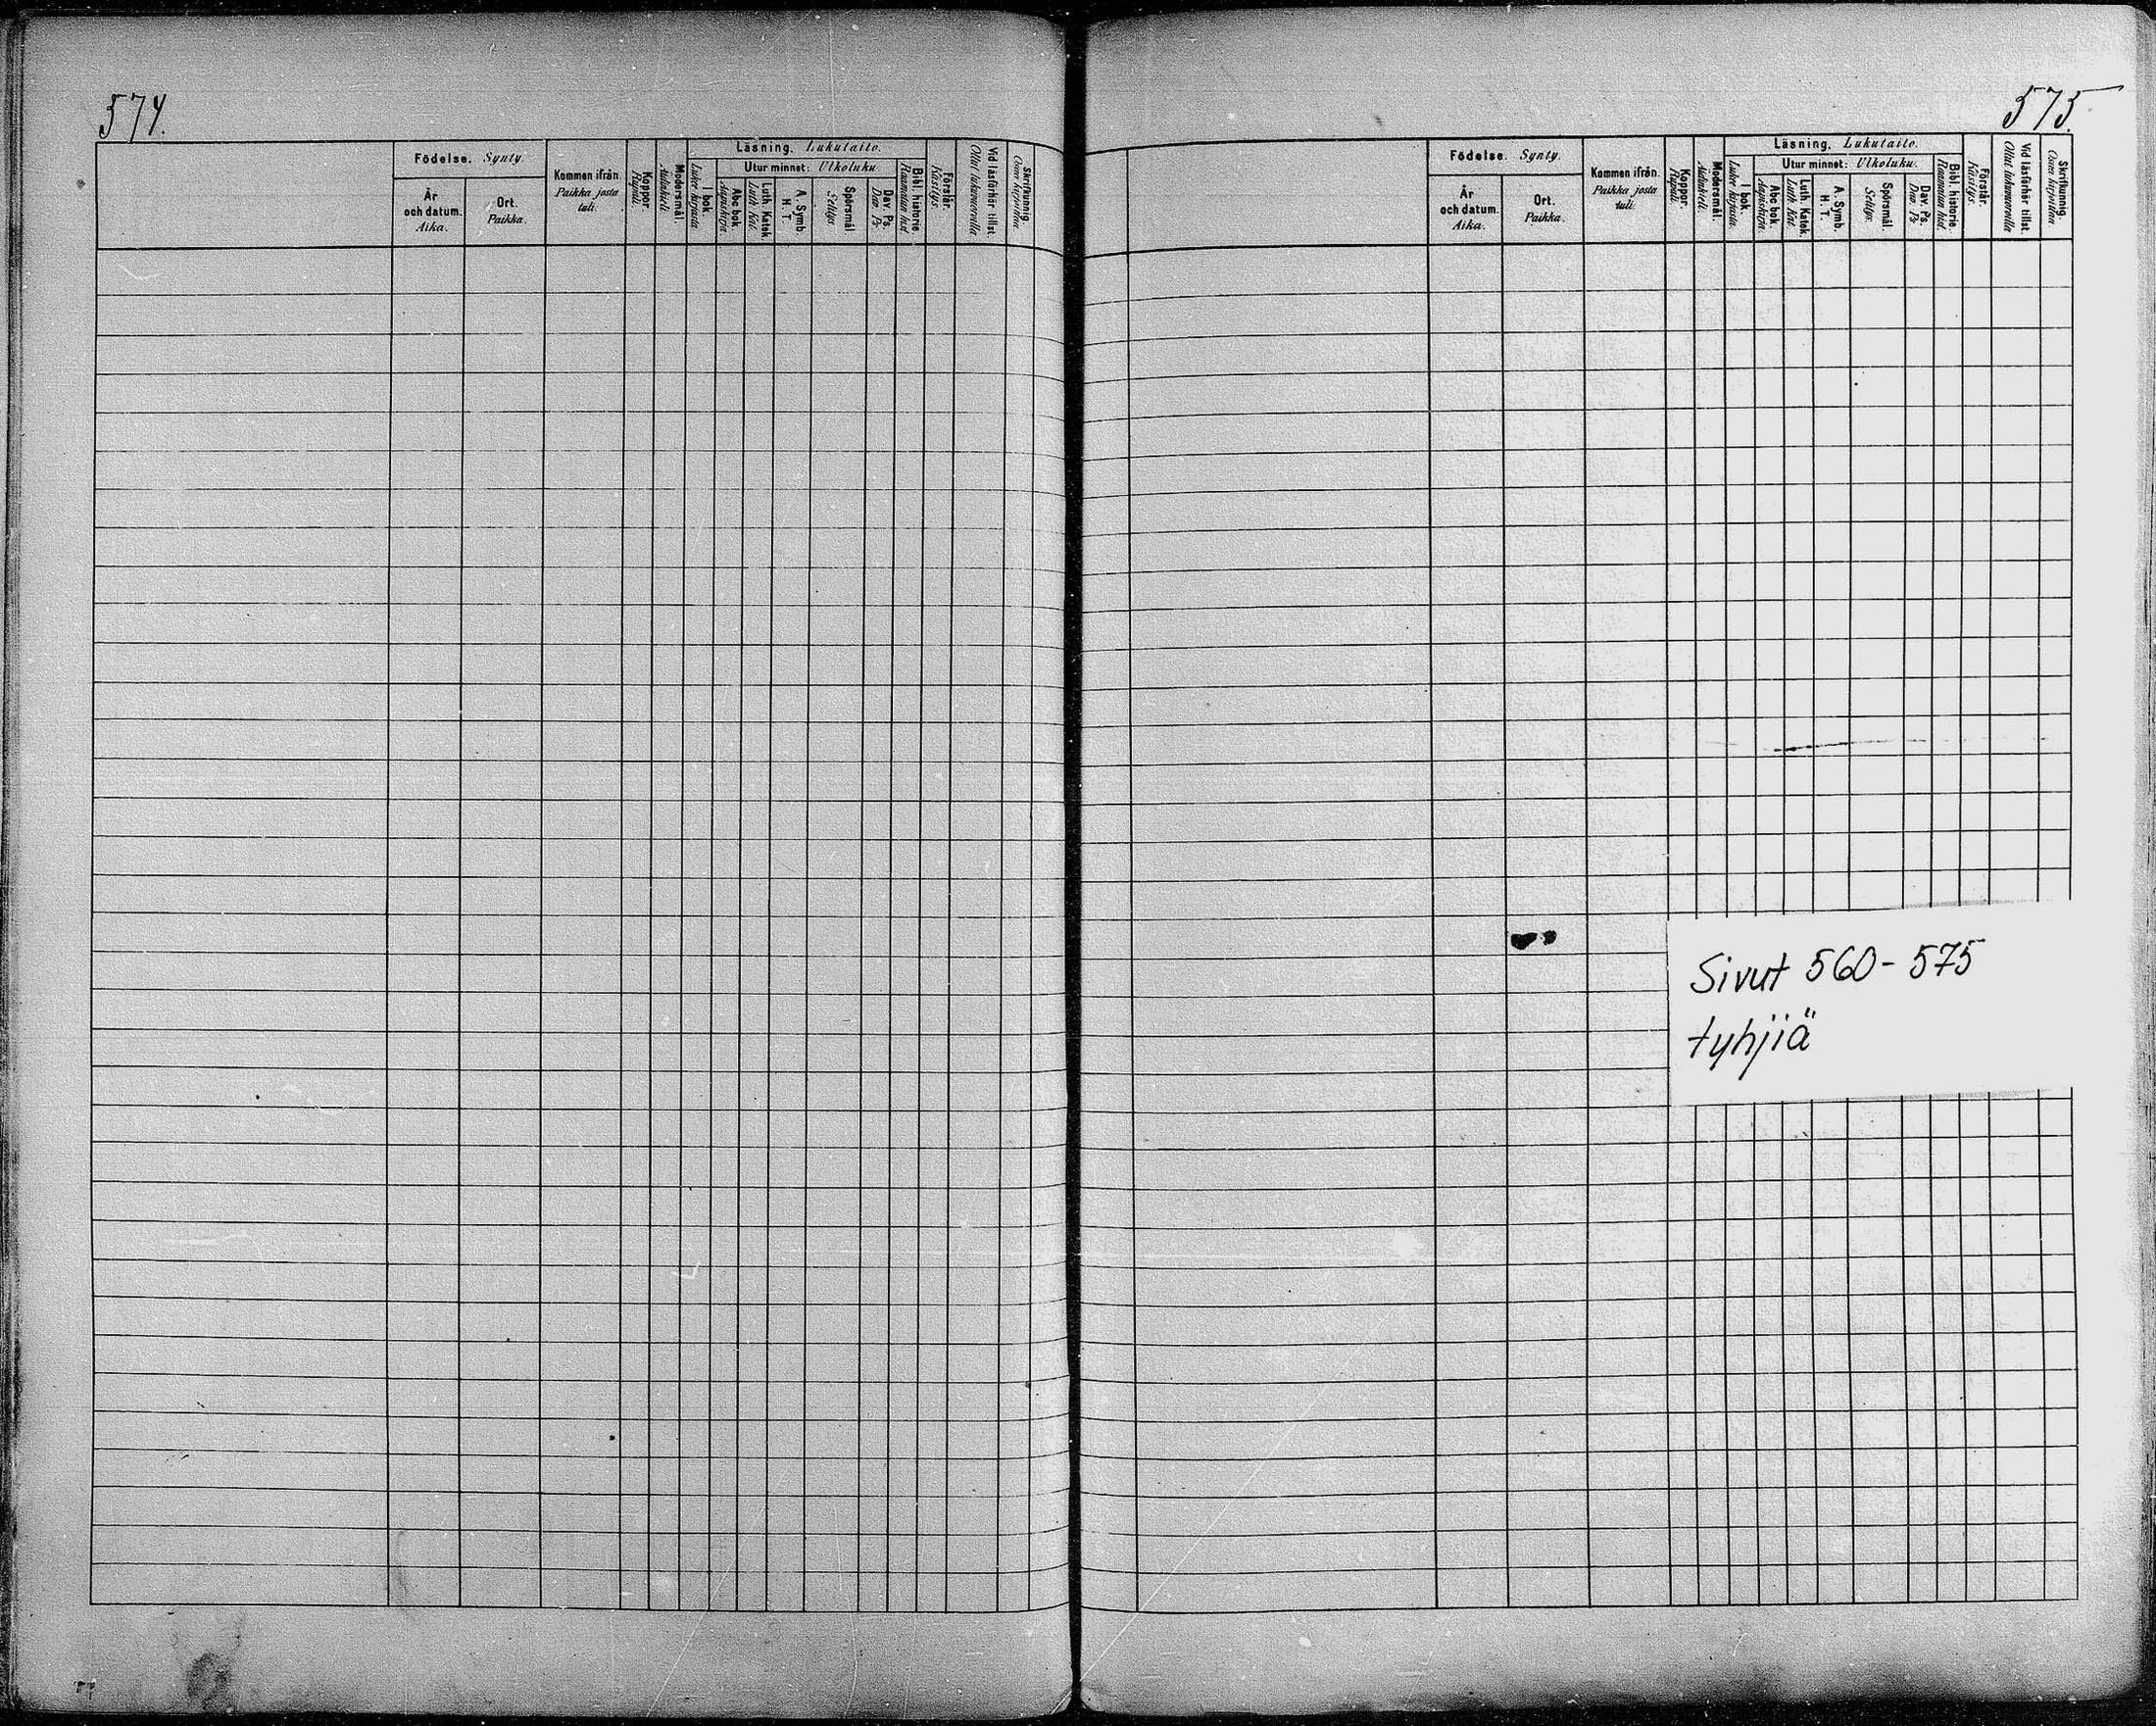 574.
575.
Födelse. Synty.
År
och datum.
Aika.
Ort.
Paikka.
Kommen ifrån.
Paikka josta
tuli.
Koppor.
Rupuli.
Modersmål.
Äidinkieli.
Läsning. Lukutaito.
I bok.
Lukee kirjasta.
Utur minnet: Ulkoluku.
Abc bok.
Aapiskirja.
Luth. Katek.
Luth. Kat.
A. Symb.
H. T.
Spörsmål
Selitys.
Dav. Ps.
Dav. Ps.
Bibl. historie.
Raamatun hist.
Förstår.
Käsitys.
Vid läsförhör tillst.
Ollut lukuvuorolla
Skrifkunnig.
Osaa kirjoittaa
Födelse. Synty.
År
och datum.
Aika.
Ort.
Paikka.
Kommen ifrån.
Paikka josta
tuli.
Koppor.
Rupuli.
Modersmål.
Äidinkieli.
Läsning. Lukutaito.
I bok.
Lukee kirjasta.
Utur minnet: Ulkoluku.
Abc bok.
Aapiskirja.
Luth. Katek.
Luth. Kat.
A. Symb.
H. T.
Spörsmål.
Selitys.
Dav. Ps.
Dav. Ps.
Bibl. historie.
Raamatun hist.
Förstår.
Käsitys.
Vid läsförhör tillst.
Ollut lukuvuorolla
Skrifkunnig.
Osaa kirjoittaa
Sivut 560-575
tyhjiä